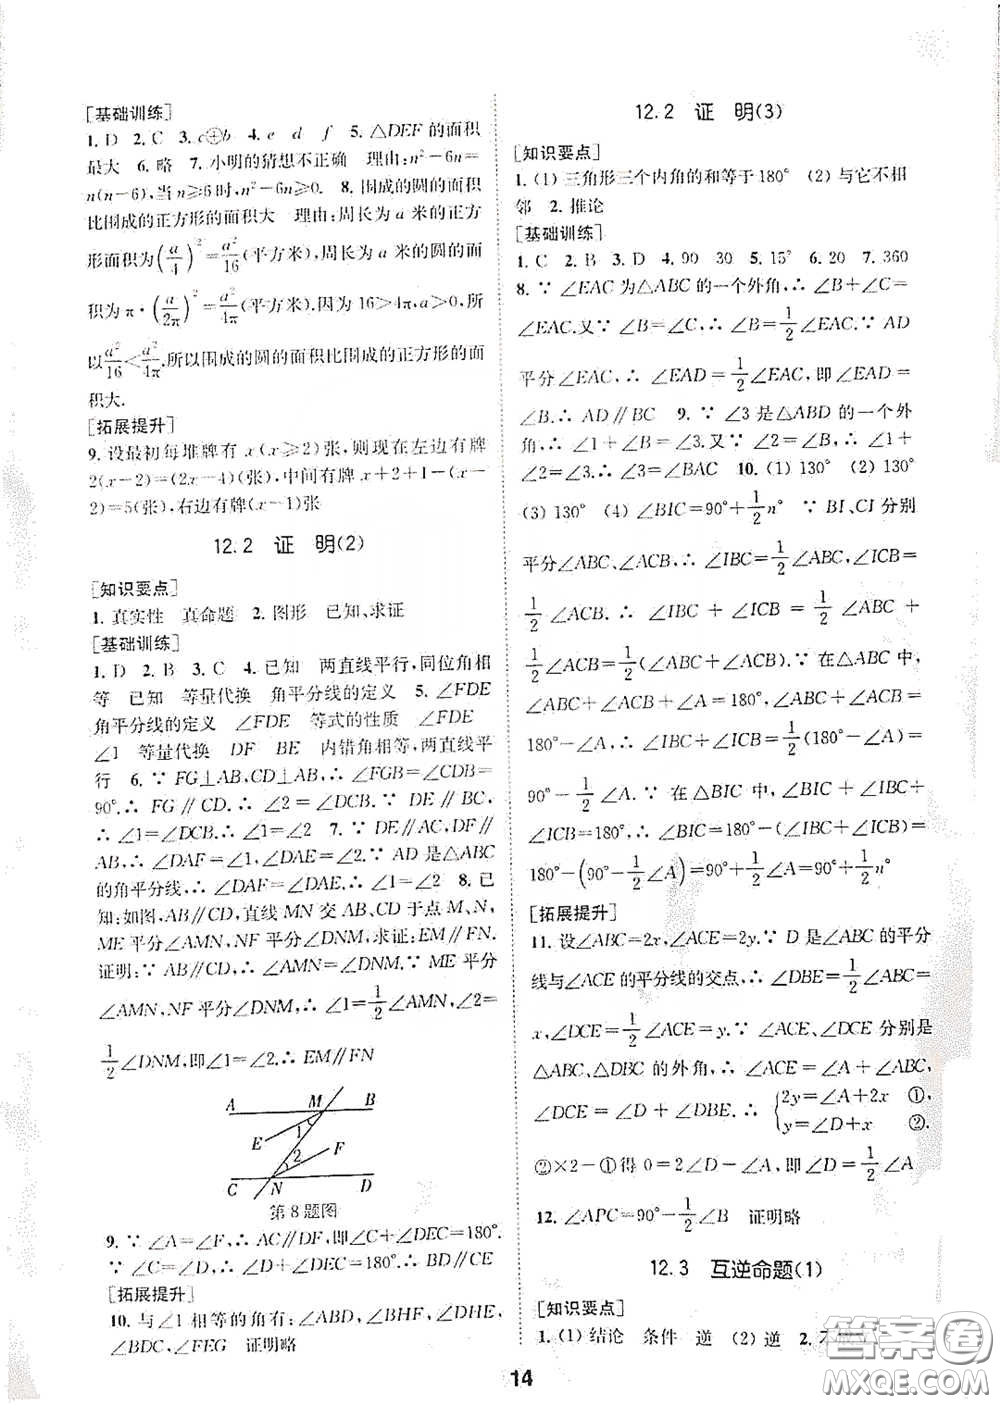 [基础训练]
1. D 2. C 3. c⊕b 4. e d f 5. △DEF的面积
最大 6. 略 7. 小明的猜想不正确 理由:n²-6n=
n(n-6),当n≥6时,n²-6n≥0. 8. 围成的圆的面积
比围成的正方形的面积大 理由:周长为a米的正方
形面积为(a/4)²=a²/16(平方米),周长为a米的圆的面
积为π·(a/2π)²=a²/4π(平方米).因为16>4π,a>0,所
以a²/16<a²/4π.所以围成的圆的面积比围成的正方形的面
积大.
[拓展提升]
9. 设最初每堆牌有x(x≥2)张,则现在左边有牌
2(x-2)=(2x-4)(张),中间有牌x+2+1-(x-
2)=5(张),右边有牌(x-1)张
12.2 证 明(2)
[知识要点]
1. 真实性 真命题 2. 图形 已知、求证
[基础训练]
1. D 2. B 3. C 4. 已知 两直线平行,同位角相
等 已知 等量代换 角平分线的定义 5. ∠FDE
角平分线的定义 ∠FDE 等式的性质 ∠FDE
∠1 等量代换 DF BE 内错角相等,两直线平
行 6. ∵ FG⊥AB,CD⊥AB,∴ ∠FGB=∠CDB=
90°.∴ FG∥CD.∴ ∠2=∠DCB.∵ DE∥BC,
∴ ∠1=∠DCB.∴ ∠1=∠2 7. ∵ DE∥AC,DF∥
AB,∴ ∠DAF=∠1,∠DAE=∠2.∵ AD是△ABC
的角平分线,∴ ∠DAF=∠DAE.∴ ∠1=∠2 8. 已
知:如图,AB∥CD,直线MN交AB、CD于点M、N,
ME平分∠AMN,NF平分∠DNM.求证:EM∥FN.
证明:∵ AB∥CD,∴ ∠AMN=∠DNM.∵ ME平分
∠AMN,NF平分∠DNM,∴ ∠1=1/2∠AMN,∠2=
1/2∠DNM,即∠1=∠2.∴ EM∥FN
A M B
E 1 F
2
C N D
第8题图
9. ∵ ∠A=∠F,∴ AC∥DF,即∠C+∠DEC=180°.
∵ ∠C=∠D,∴ ∠D+∠DEC=180°.∴ BD∥CE
[拓展提升]
10. 与∠1相等的角有:∠ABD,∠BHF,∠DHE,
∠BDC,∠FEG 证明略
12.2 证 明(3)
[知识要点]
1. (1) 三角形三个内角的和等于180° (2) 与它不相
邻 2. 推论
[基础训练]
1. C 2. B 3. D 4. 90 30 5. 15° 6. 20 7. 360
8. ∵ ∠EAC为△ABC的一个外角,∴ ∠B+∠C=
∠EAC.又∵ ∠B=∠C,∴ ∠B=1/2∠EAC.∵ AD
平分∠EAC,∴ ∠EAD=1/2∠EAC,即∠EAD=
∠B.∴ AD∥BC 9. ∵ ∠3是△ABD的一个外
角,∴ ∠1+∠B=∠3.又∵ ∠B=∠2,∴ ∠1+
∠2=∠3.∴ ∠3=∠BAC 10. (1) 130° (2) 130°
(3) 130° (4) ∠BIC=90°+1/2n° ∵ BI、CI分别
平分∠ABC、∠ACB,∴ ∠IBC=1/2∠ABC,∠ICB=
1/2∠ACB.∴ ∠IBC+∠ICB=1/2∠ABC+
1/2∠ACB=1/2(∠ABC+∠ACB).∵ 在△ABC中,
∠ABC+∠ACB+∠A=180°,∴ ∠ABC+∠ACB=
180°-∠A,∴ ∠IBC+∠ICB=1/2(180°-∠A)=
90°-1/2∠A.∵ 在△BIC中,∠BIC+∠IBC+
∠ICB=180°,∴ ∠BIC=180°-(∠IBC+∠ICB)=
180°-(90°-1/2∠A)=90°+1/2∠A=90°+1/2n°
[拓展提升]
11. 设∠ABC=2x,∠ACE=2y.∵ D是∠ABC的平分
线与∠ACE的平分线的交点,∴ ∠DBE=1/2∠ABC=
x,∠DCE=1/2∠ACE=y.∵ ∠ACE、∠DCE分别是
△ABC、△DBC的外角,∴ ∠ACE=∠A+∠ABC,
∠DCE=∠D+∠DBE.∴ {2y=∠A+2x ①,
y=∠D+x ②.
②×2-①得0=2∠D-∠A,即∠D=1/2∠A
12. ∠APC=90°-1/2∠B 证明略
12.3 互逆命题(1)
[知识要点]
1. (1) 结论 条件 逆 (2) 逆 2.
答案卷
MXQE.COM
14